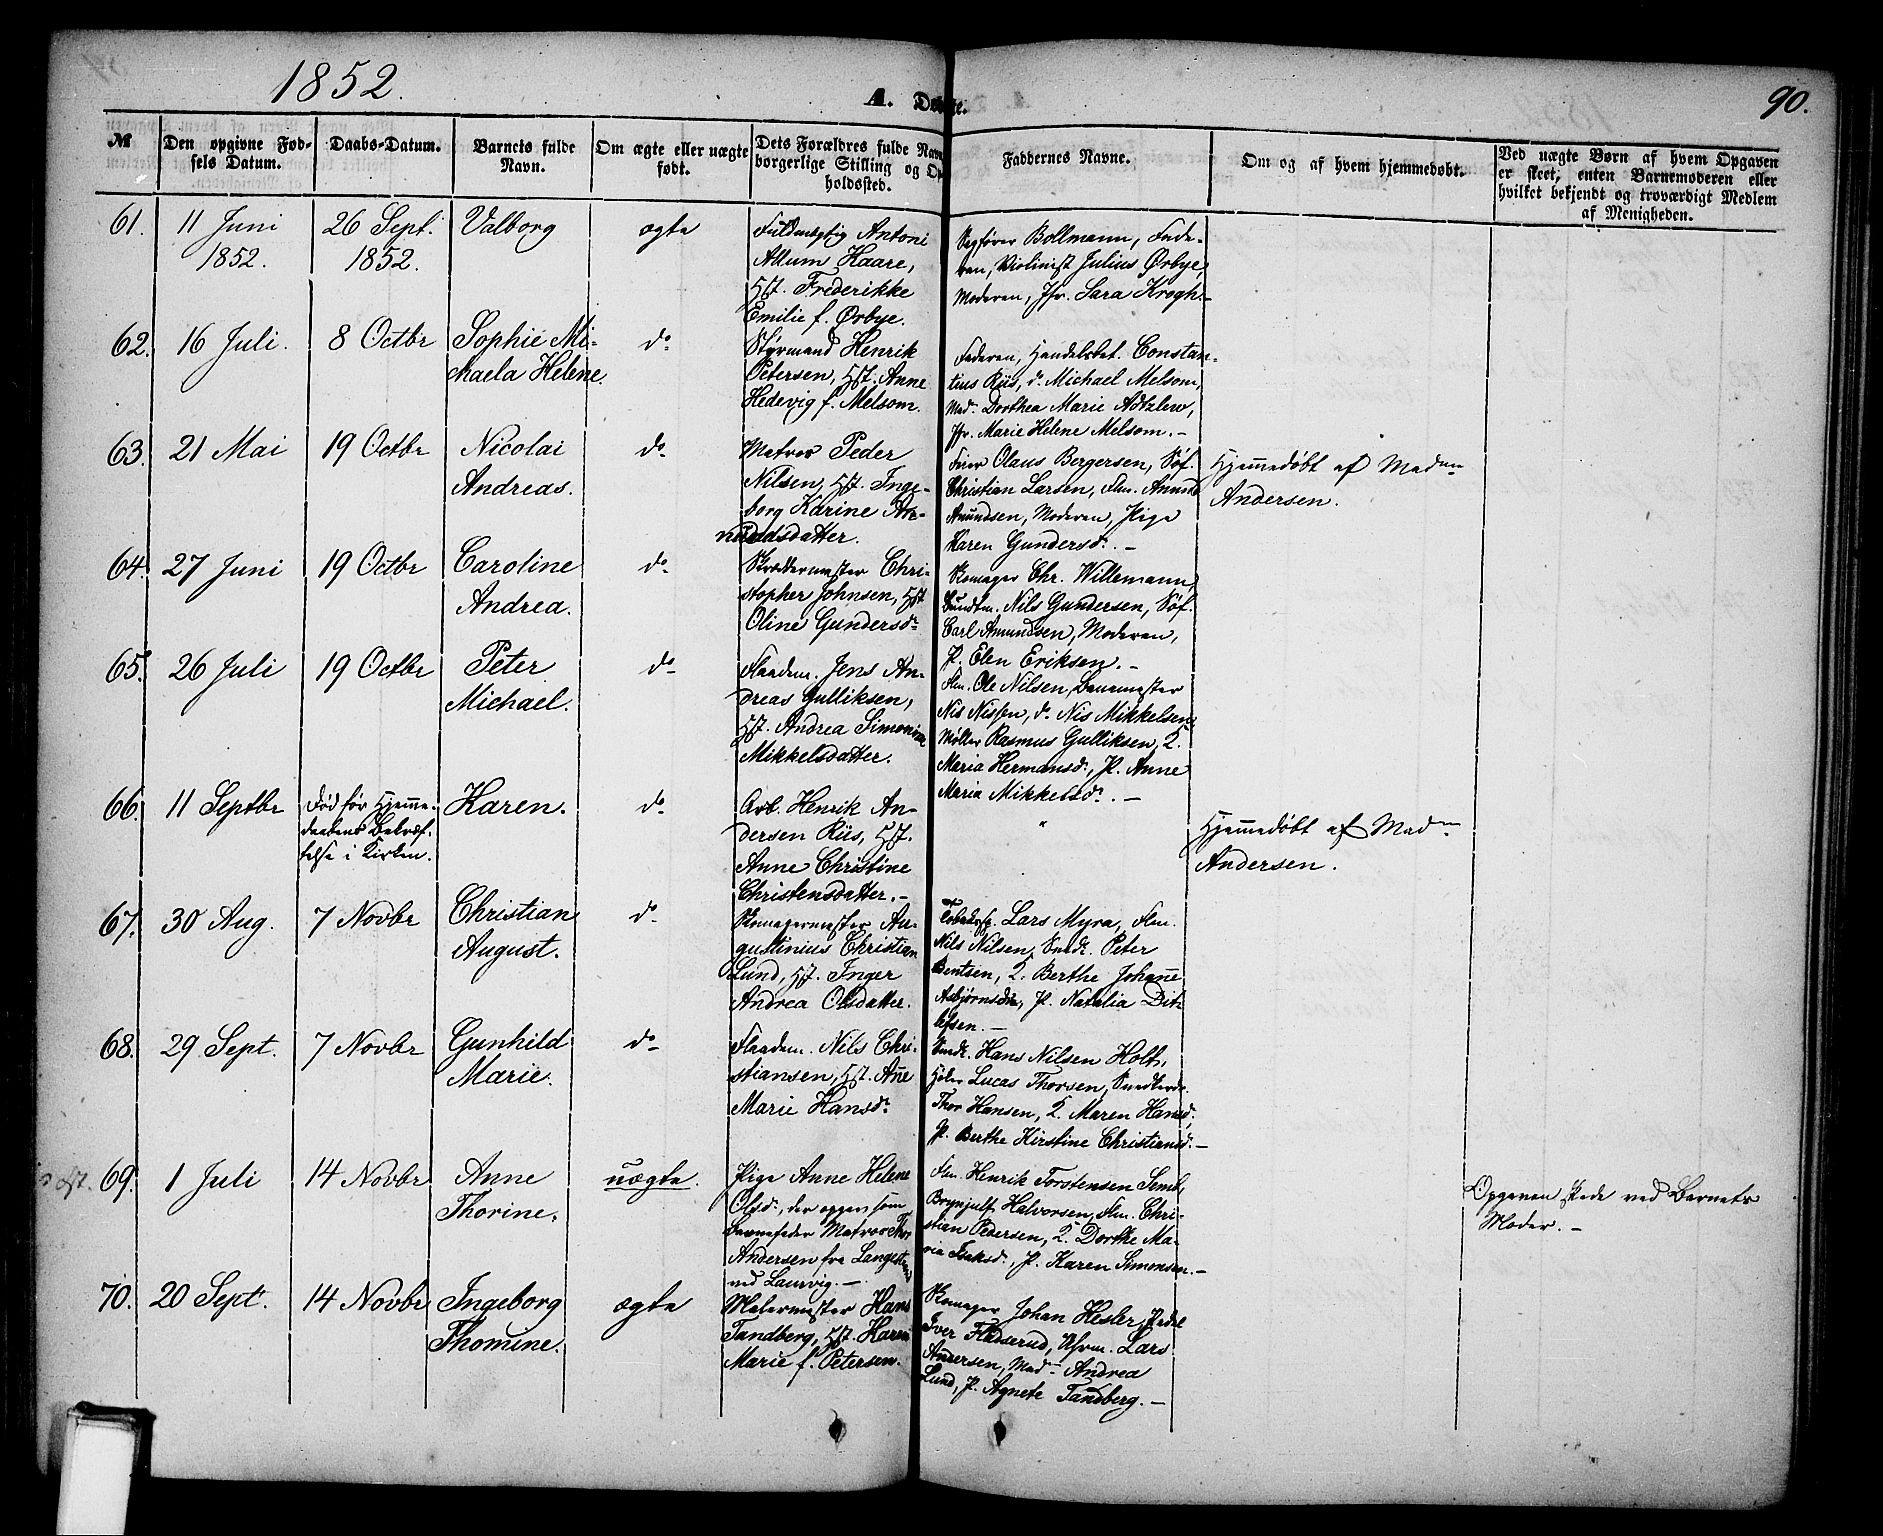 1852.
A. Døbte.
90.
№
Den opgivne Fød-
sels Datum.
Daabs-Datum.
Barnets fulde
Navn.
Om ægte eller uægte
født.
Dets Forældres fulde Navn
borgerlige Stilling og O
holdssted.
Faddernes Navne.
Om og af hvem hjemmedøbt.
Ved uægte Børn af hvem Opgaven
er skeet, enten Barnemoderen eller
hvilket bekjendt og troværdigt Medlem
af Menigheden.
61.
11 Juni
1852.
26 Sept.
1852.
Valborg
ægte
Fuldmægtig Antoni
Allum Haare,
Hst. Frederikke
Emilie f. Ørbye.
Sagfører Bollmann, Fade-
ren, Violinist Julius Ørbye,
Moderen, Jfr. Sara Krogh.–
62.
16 Juli.
8 Octbr
Sophie Mi-
chaela Helene.
do
Styrmand Henrik
Petersen, Hst. Anne
Hedevig f. Melsom.
Faderen, Handelsbet. Constan-
tius Riis, do Michael Melsom,
Mad. Dorthea Marie Adtzlew,
Jfr. Marie Helene Melsom.–
63.
21 Mai
19 Octbr
Nicolai
Andreas.
do
Matros Peder
Nilsen, Hst. Inge-
borg Karine
datter.
Olaus Bergersen, Søf.
Christian Larsen, Flm. Amund
Amundsen, Moderen, Pige
Karen Gundersdr.–
Hjemmedøbt af Mad
Andersen.
64.
27 Juni
19 Octbr
Caroline
Andrea.
do
Skræddermester Chri-
stopher Johnsen, Hst
Oline Gundersdr
Skomager Chr. Willemann,
Nils Gundersen, Søf.
Carl Amundsen, Moderen,
P. Elen Eriksen.–
65.
26 Juli
19 Octbr
Peter
Michael.
do
Flaadem. Jens An-
dreas Gulliksen,
Hst. Andrea Simonine
Mikkelsdatter.
Flm. Ole Nilsen, Banemester
Nis Nissen, do Nis Mikkelsen,
Møller Rasmus Gulliksen, K.
Maria Hermansdr, P. Anne
Maria Mikkelsdr.–
66.
11 Septbr
Død før Hjemme-
daabens Bekræf-
telse i Kirken.
Karen.
do
Arb. Henrik An-
dersen Riis, Hst.
Anne Christine
Christensdatter.–
"
Hjemmedøbt af Mad
Andersen.
67.
30 Aug.
7 Novbr
Christian
August.
do
Skomagermester Au-
gustinius Christian
Lund, Hst. Inger
Andrea Olsdatter.
Lars Myra, Flm.
Nils Nilsen, Snedk. Peter
Bentsen, K. Berthe Johanne
Asbjørnsdtr, P. Natalia Dit-
lefsen.–
68.
29 Sept.
7 Novbr
Gunhild
Marie.
do
Flaadem. Nils Chri-
stiansen, Hst. Ane
Marie Hansdr
Snedk. Hans Nilsen Holt,
Lucas Thorsen, Snedkerdr.
Thor Hansen, K. Maren Hansd.
P. Berthe Kirstine Christiansd.–
69.
1 Juli
14 Novbr
Anne
Thorine.
uægte.
Pige Anne Helene
Olsdr, der opgav som
Barnefader Matros Thor
Andersen fra Langestrand
ved Laurvig.–
Flm. Henrik Torstensen Semb,
Brynjulf Halvorsen, Flm. Chri-
stian Pedersen, K. Dorthe Ma-
ria Isaksd., P. Karen Simonsen.–
Opgaven skede ved Barnets
Moder.–
70.
20 Sept.
14 Novbr
Ingeborg
Thomine.
ægte
Malermester Hans
Tandberg, Hst. Karen
Marie f. Petersen.
Skomager Johan Hesler,
Iver Fladserud, Lars
Andersen, Mad. Andrea
Lund, P. Agnete Tandberg.–